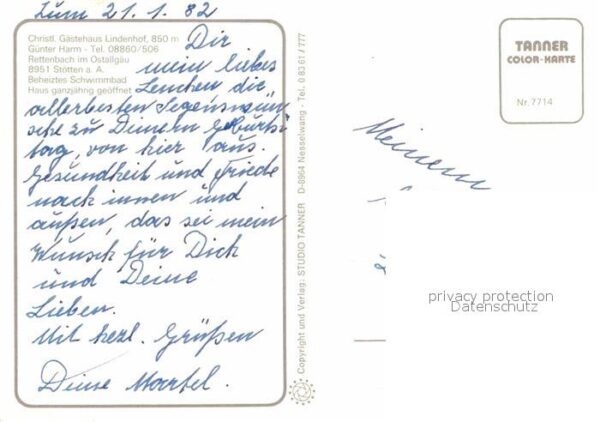 Zum 21. 1. 82
Christl. Gästehaus Lindenhof, 850 m
Günter Harm - Tel. 08860/506
Rettenbach im Ostallgäu
8951 Stötten a. A.
Beheiztes Schwimmbad
Haus ganzjährig geöffnet
Dir
mein liebes
Lenchen die
allerbesten Segenswün-
sche zu Deinem Geburts-
tag, von hier aus.
Gesundheit und Friede
nach innen und
außen, das sei mein
Wunsch für Dich
und Deine
Lieben.
Mit herzl. Grüßen
Deine
Copyright und Verlag: STUDIO TANNER D-8964 Nesselwang - Tel. 0 83 61 / 777
TANNER
COLOR-KARTE
Nr. 7714
Meinem
privacy protection
Datenschutz